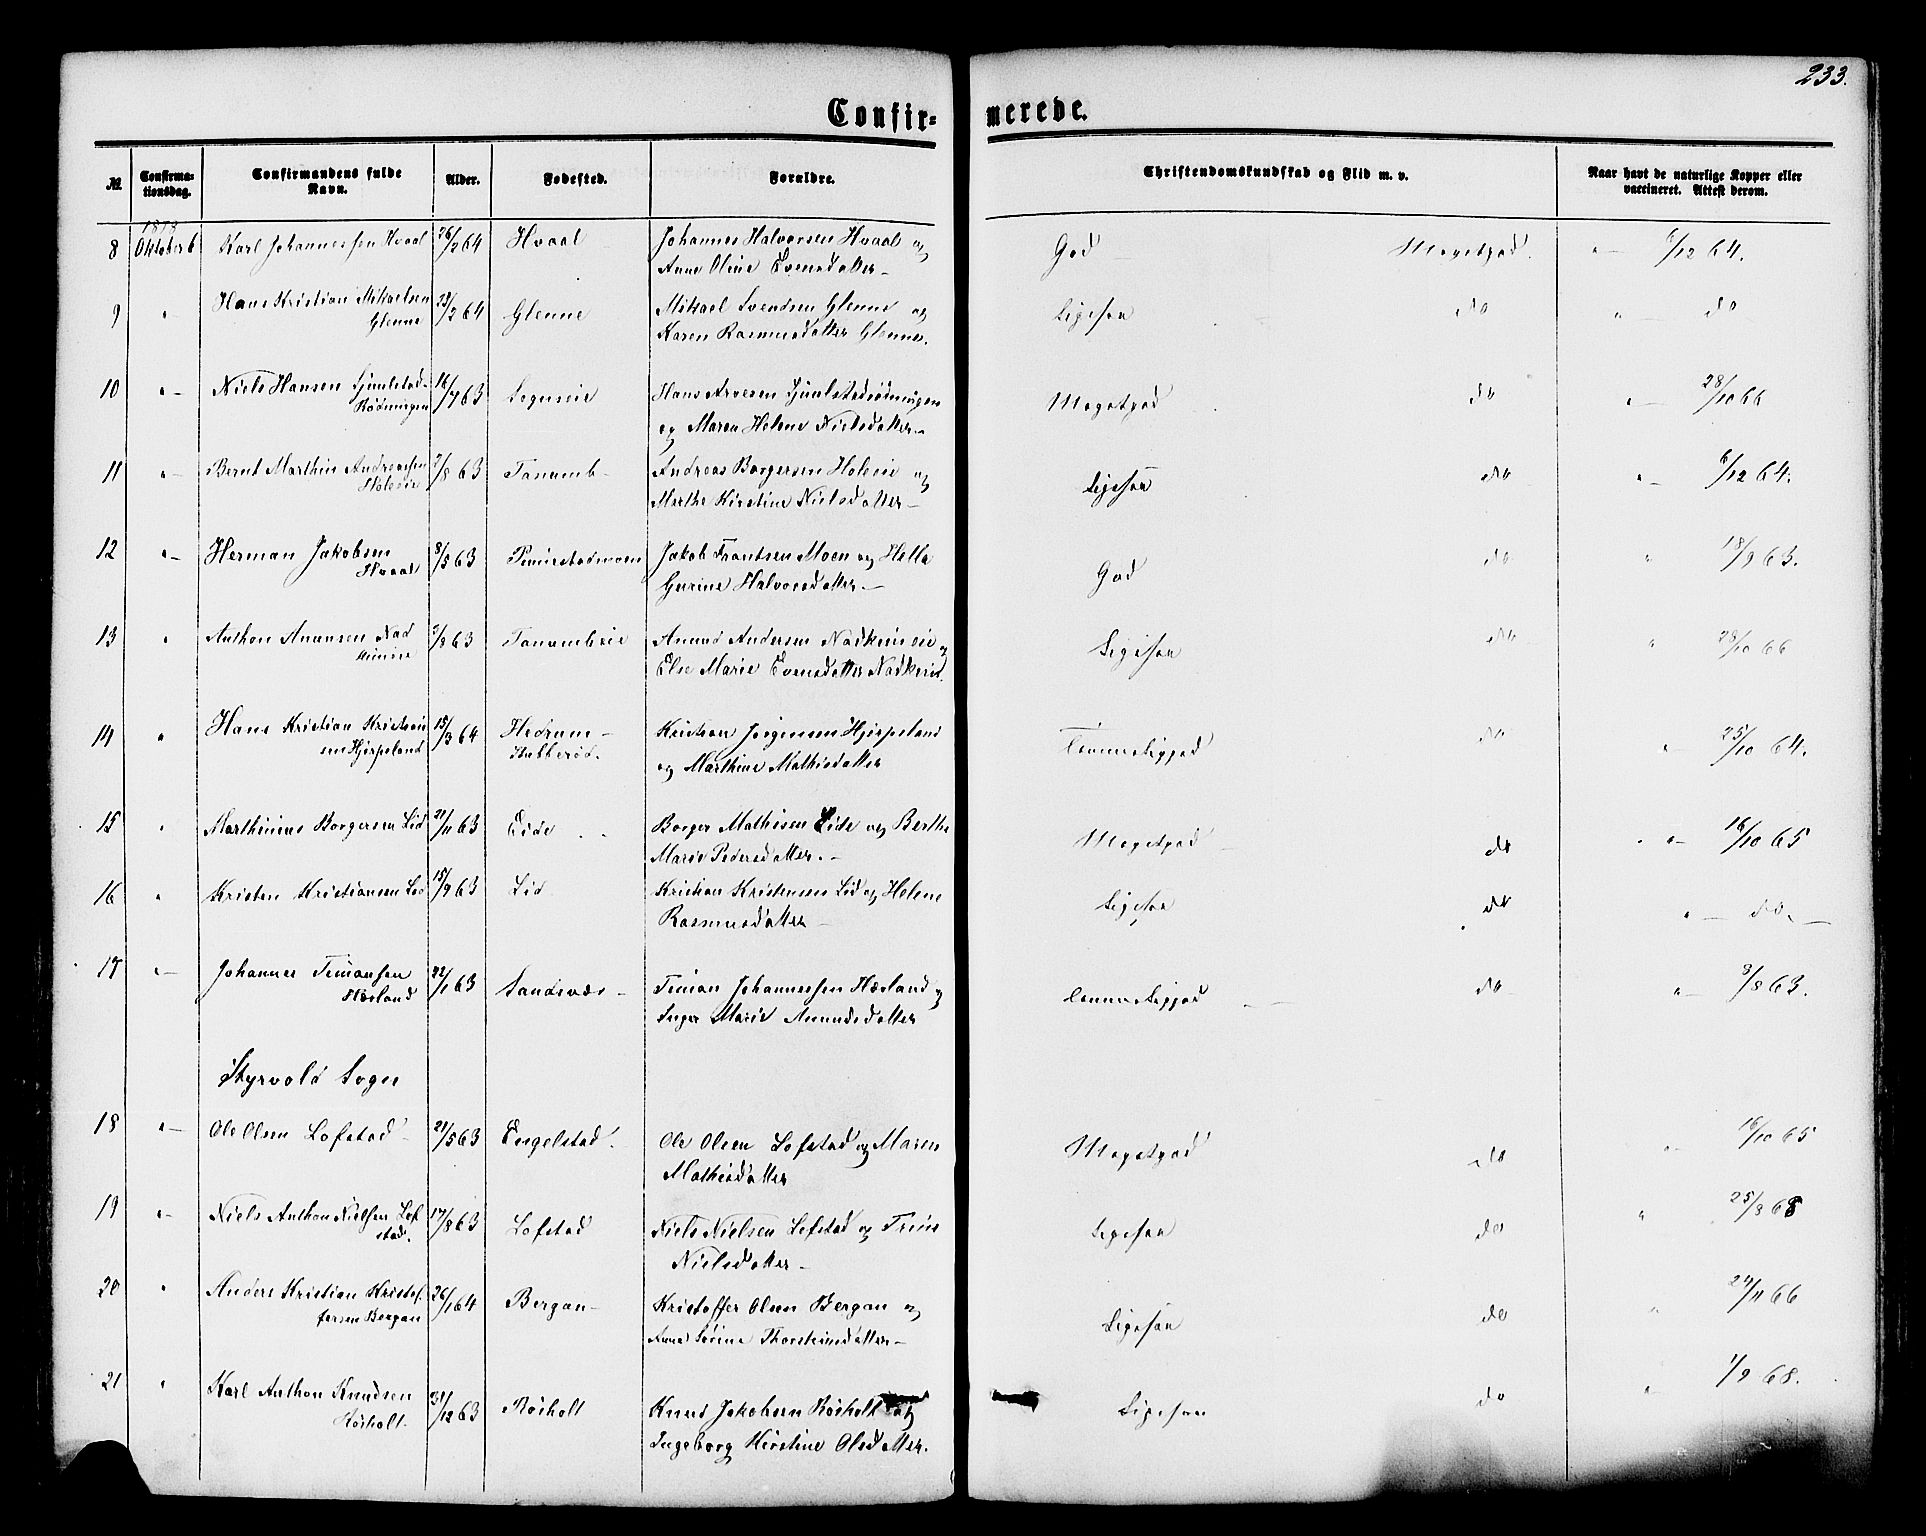 233.
Confir-
merede.
№
Confirma-
tionsdag.
Confirmandens fulde
Navn.
Alder.
Fødested.
Forældre.
Christendomskundskab og Flid m. v.
Naar havt de naturlige Kopper eller
vaccineret. Attest derom.
8 Oktober 6 Karl Johannessen Hvaal 26/2 64 Hvaal Johannes Halvorsen Hvaal og God Megetgod. "— 6/12 64.
Anne Oline Evensdatter—
9 " Hans Kristian Mikaelsen 23/2 64 Glenne Mikael Svendsen Glenne og Ligesaa do " — do
Glenne Karen Rasmusdatter Glenne.
10 "— Niels Hansen 16/7 63 Hans Megetgod do "— 28/10 66
og Maren Helene Nielsdatter—
11 "— Bernt Marthin Andreassen 7/8 63 Tanumb- Andreas Borgersen Holeeie og Ligesaa do "— 6/12 64.
Holeeie Marthe Kirstine Nielsdatter—
12 "— Herman Jakobsen 8/5 63 Jakob Frantsen Moen og Helle God do " 18/9 63.
Hvaal Gurine Halvorsdatter—
13 " Anthon Anunsen Nad 63 Tanumbeie Anund Andersen Nadkeimeie og Ligesaa do " 28/10 66
Else Marie Evensdatter
14 " Hans Kristian Kristen 15/3 64 Hedrum— Kristen Jørgensen Hjerpeland Temmeliggod do " 25/10 64.
sen Hjerpeland Stubberød. og Marthine Mathisdatter
15 " Marthinius Borgersen Lid 21/11 63 Eide Borger Mathisen Eide og Berthe Megetgod do "— 16/10 65
Marie Pedersdatter.—
16 " Kristen Kristiansen Lid 15/9 63 Lid Kristian Kristensen Lid og Helene Ligesaa do "— do.—
Rasmusdatter—
17 "— Johannes Timansen 22/1 63 Sandsvær— Timan Johannessen Hærland og Temmeliggod do "— 3/8 63.
Hærland Inger Marie Anundsdatter
Styrvold Sogn
18 "— Ole Olsen Lofstad 21/5 63 Engelstad. Ole Olsen Lofstad og Maren Megetgod do "— 16/10 65
Mathisdatter
19 "— Niels Anthon Nielsen Lof 17/8 63 Lofstad Niels Nielsen Lofstad og Trine Ligesaa do " 68
stad. Nielsdatter—
20 " Anders Kristian Kristof- 26/1 64 Bergan— Kristoffer Olsen Bergan og Ligesaa do " 66
fersen Bergan Anne Sørine Thorsteinsdatter—
21 " Karl Anthon Knudsen 31/12 63 Røsholt Knud Jakobsen Røsholt og Ligesaa do "— 1/9 68.
Røsholt. Ingeborg Kirstine Olsdatter.